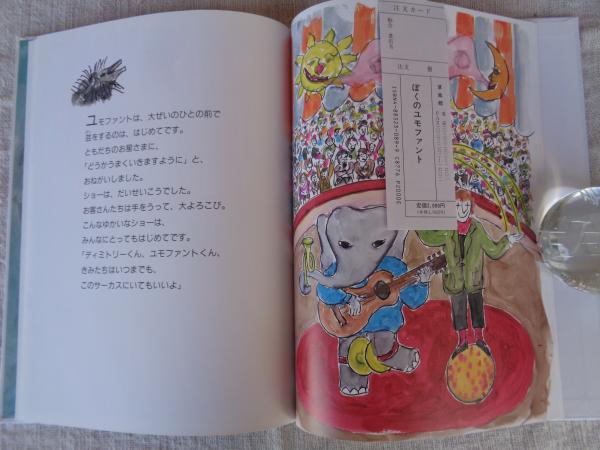 ユモファントは、大ぜいのひとの前で
芸をするのは、はじめてです。
ともだちのお星さまに、
「どうかうまくいきますように」と、
おねがいしました。
ショーは、だいせいこうでした。
お客さんたちは手をうって、大よろこび。
こんなゆかいなショーは、
みんなにとってもはじめてです。
「ディミトリーくん、ユモファントくん、
きみたちはいつまでも、
このサーカスにいてもいいよ」
注文カード
注文
冊
ぼくのユモファント
定価2,000円